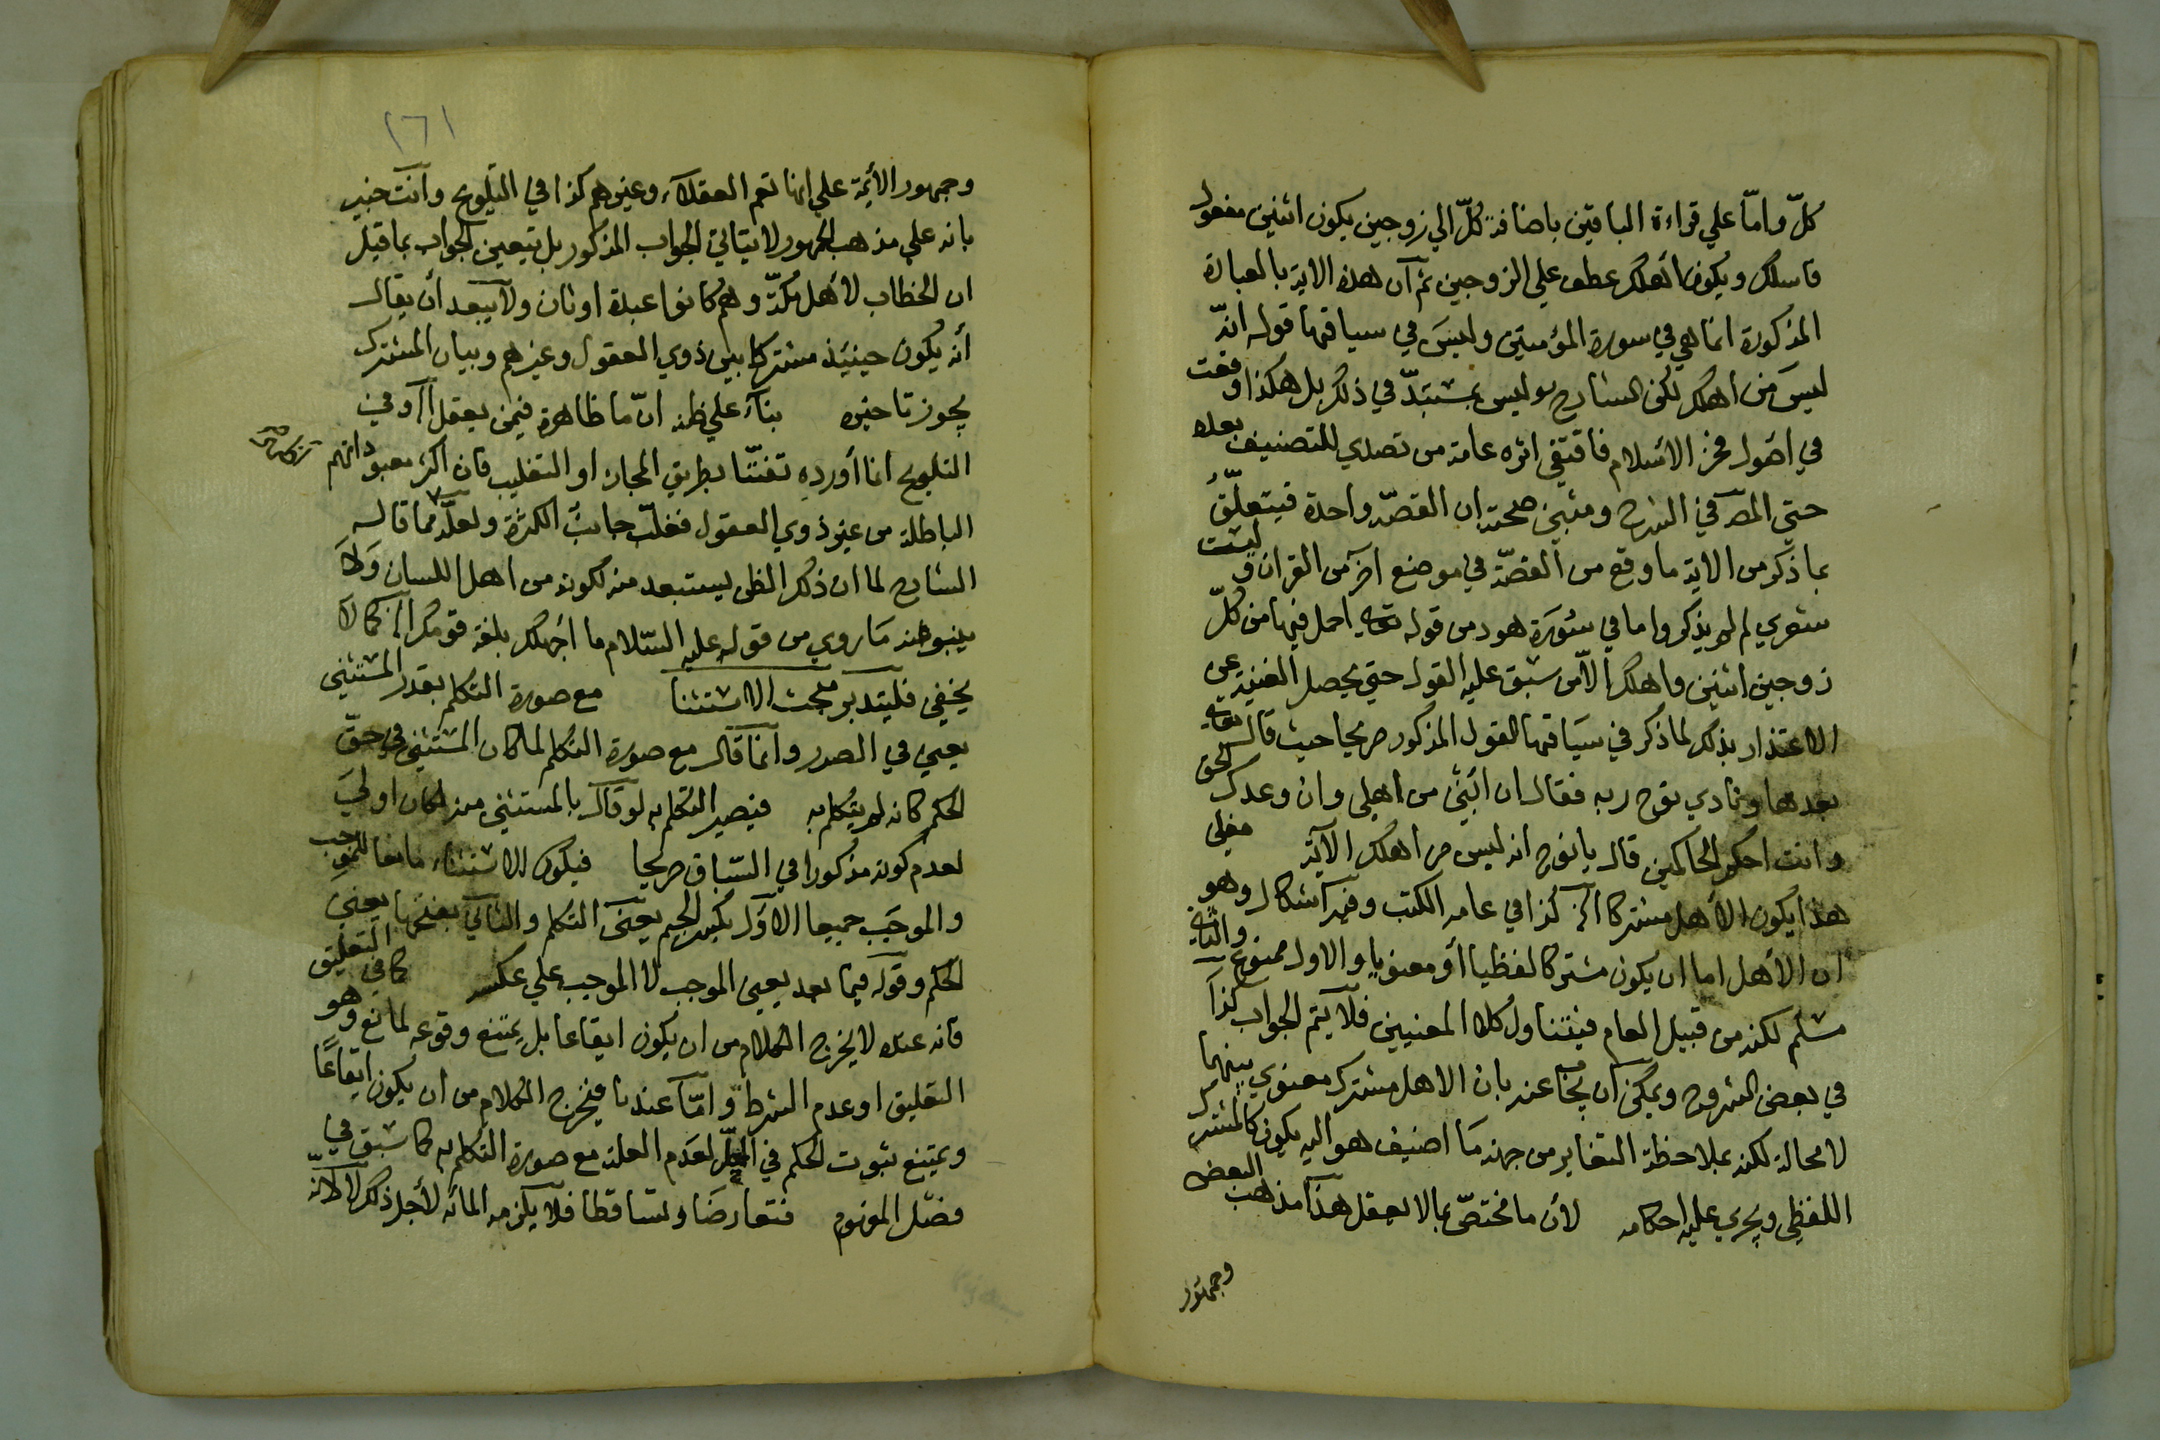 كلّ وامّا علي قراءة الباقين باضافة كلّ الي زوجين يكون اثنين مفعول
فاسلك ويكون اهلك عطف علي الزوجين ثم ان هذه الاية بالعبارة
المذكورة انما هي في سورة المؤمنين وليس في سياقها قوله انه
ليس من اهلك لكن الشارح ليس بمستبدّ في ذلك بل هكذا وقعت
في اصول فخر الاسلام فاقتفي اثره عامة من تصدي للتصنيف بعده
حتي المصـ في الشرح ومبني صحته ان القصّة واحدة فيتعلّق
بما ذكر من الاية ما وقع من القصّة في موضع آخر من القران وليت
شعري لم لم يذكروا ما في سورة هود من قوله تعالى احمل فيها من كلّ
زوجين اثنين واهلك الا من سبق عليه القول حتي يحصل الغنية عن
الاعتذار بذلك لما ذكر في سياقها القول المذكور صريحا حيث قال تعالى
بعدها ونادي نوح ربه فقال ان ابني من اهلي وان وعدك الحق
وانت احكم الحاكمين قال يا نوح انه ليس من اهلك الآية فعلي
هذا يكون الأهل مشتركا الخ كذا في عامه الكتب وفيه اشكال وهو
ان الأهل اما ان يكون مشتركا لفظيا أو معنويا والاول ممنوع والثاني
مسلم لكنه من قبيل العام فيتناول كلا المعنيين فلا يتم الجواب كذا
في بعض الشروح ويمكن ان يجاب عنه بان الاهل مشترك معنوي بينهما
لا محالة لكنه بملاحظة التغاير من جهة ما اضيف هو اليه يكون كالمشترك
اللفظي ويجري عليه احكامه لأن ما مختصّ بما لا يعقل هذا مذهب البعض
وجمهور
١٦١
وجمهور الأئمة علي انها تعم العقلاء وغيرهم كذا في التلويح وانت خبير
بانه علي مذهب الجمهور لا يتاتي الجواب المذكور بل يتعين الجواب بما قيل
ان الخطاب لأهل مكة وهم كانوا عبدة اوثان ولا يبعد أن يقال
أنه يكون حينئذ مشتركا بين ذوي العقول وغيرهم وبيان المشترك
يجوز تاخيره بناء علي ظنه انّ ما ظاهرة فيمن يعقل الخ وفي
التلويح انما أورده تعنتا بطريق المجاز او التغليب فان اكثر معبوداتهم
الباطلة من غير ذوي العقول فغلب جانب الكثرة ولعلّه مما قاله
الشارح لما ان ذلك الظن يستبعد منه لكونه من اهل اللسان ولا
ينبو عنه ما روي من قوله عليه السّلام ما اجهلك بلغة قومك الخ كما لا
يخفي فليتدبر مبحث الاستثنا مع صورة التكلم بقدر المستثني
يعني في الصدر وانما قال مع صورة التكلم لما كان المستثني في حقّ
الحكم كانه لم يتكلم به فيصير التكلم به لو قال بالمستثني منه لكان اولي
لعدم كونه مذكورا في السّباق صريحا فيكون الاستثناء مانعا للموجب
والموجَب جميعا الاوّل بكسر الجيم يعني التكلم والثاني بفتحها يعني
الحكم وقوله فيما بعد يعني الموجب لا الموجب علي عكسه كما في التعليق
فانه عنده لا يخرج الكلام من ان يكون ايقاعا بل يمتنع وقوعه لمانع وهو
التعليق او عدم الشرط وامّا عندنا فيخرج الكلام من ان يكون ايقاعًا
ويمتنع ثبوت الحكم في المحل لعدم العلة مع صورة التكلم به كما سبق في
فصل المفهوم فتعارضا وتساقطا فلا يلزمه المائه لأجل ذلك لا لانّه